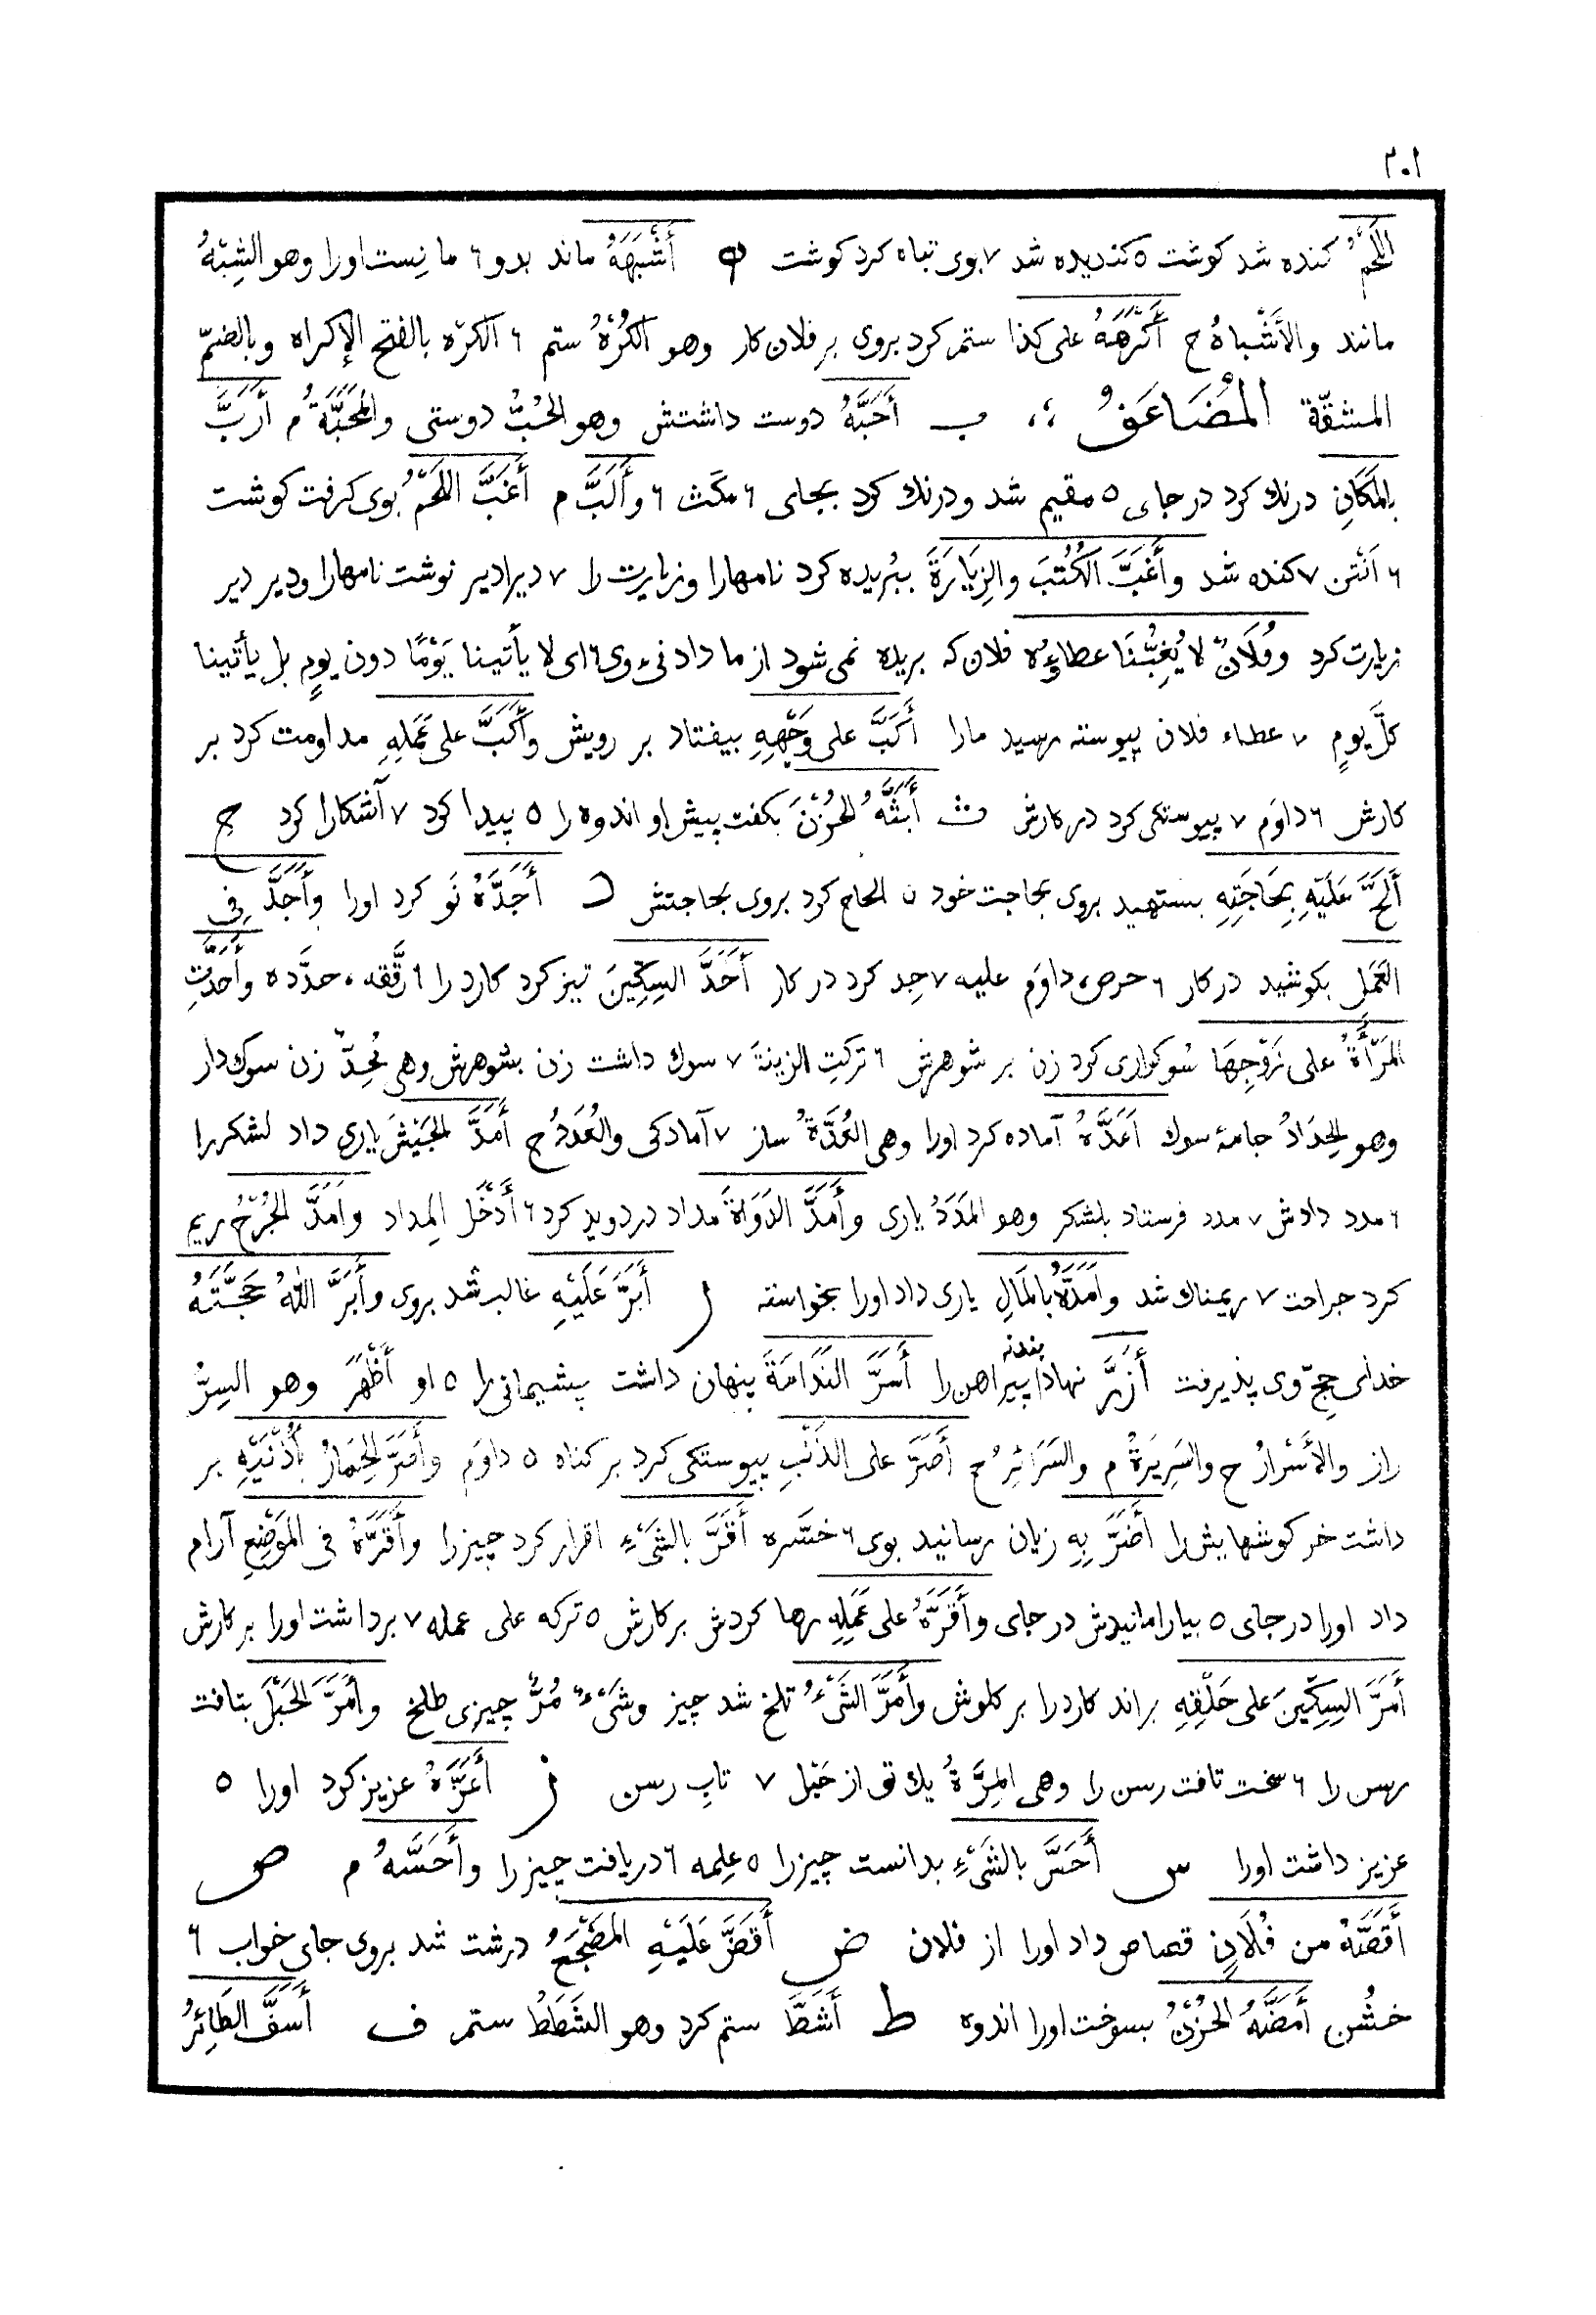 ٣٠١
اللَّحْمُ كنده شد كوشت ٥ كنديده شد ٧ بوى تباه كرد كوشت ه أَشْبَهَهُ ماند بدو ٦ مانِست اورا وهو الشِبْهُ
مانند والأَشْباهُ ج أَكْرَهَهُ على كذا ستم كرد بروى بر فلان كار وهو الكُرْهُ ستم ٦ الكَرْه بالفتح الإكراه وبالضمّ
المشقّة المُضَاعَفُ ،، ب أَحَبَّهُ دوست داشتش وهو الحُبُّ دوستى والمَحَبَّةُ م أَرَبَّ
بالمَكَانِ درنك كرد در جاى ٥ مقيم شد ودرنك كرد بجاى ٦ مكَث ٦ وأَلَبَّ م أَغَبَّ اللَحْمُ بوى كرفت كوشت
٦ انتن ٧ كنده شد وأَغَبَّ الكُتُبَ والزِيَارَةَ ببُريده كرد نامهارا وزيارت را ٧ ديرادير نوشت نامهارا ودير دير
زيارت كرد وفُلَانٌ لا يُغِبُّنَا عطاؤُه فلان كه بريده نمى شود از ما دادنىء وى ٦ اى لا يأتينا يَوْمًا دون يومٍ بل يأتينا
كلَّ يومٍ ٧ عطاء فلان پيوسته رسيد مارا أَكَبَّ على وَجْهِهِ بيفتاد بر رويش وأَكَبَّ على عَمَلِهِ مداومت كرد بر
كارش ٦ داوَم ٧ پيوستكى كرد در كارش ث أَبَثَّهُ الحُزْنَ بكفت پيش او اندوه را ٥ پيدا كرد ٧ آشكارا كرد ح
أَلَحَّ عَلَيْهِ بِحَاجَتِهِ بستهيد بروى بحاجت خود ن الحاح كرد بروى بحاجتش د أَجَدَّهُ نَو كرد اورا وأَجَدَّ فى
العَمَلِ بكوشيد در كار ٦ حرص، داوَم عليه ٧ جِد كرد در كار أَحَدَّ السِكِّينَ تيز كرد كارد را ٦ رقَّقه، حدَّده وأَحَدَّتِ
المَرْأَةُ على زَوْجِهَا سُوكوارى كرد زن بر شوهرش ٦ تركتِ الزينةَ ٧ سوك داشت زن بشوهرش وهى مُحِدٌّ زن سوك دار
وهو الحِدَادُ جامهٔ سوك أَعَدَّهُ آماده كرد اورا وهى العُدَّةُ ساز ٧ آمادكى والعُدَدُ ج أَمَدَّ الجَيْشَ يارى داد لشكررا
٦ مدد دادش ٧ مدد فرستاد بلشكر وهو المَدَدُ يارى وأَمَدَّ الدَوَاةَ مداد در دويد كرد ٦ أَدْخَل المِداد وأَمَدَّ الجُرْحُ ريم
كرد جراحت ٧ ريمناك شد وأَمَدَّهُ بالمَالِ يارى داد اورا بخواسته ر أَبَرَّ عَلَيْهِ غالب شد بروى وأَبَرَّ اللهُ حَجَّتَهُ
خداى حجّ وى پذيرفت أَزَرَّ نهاد بندنه پيراهن را أَسَرَّ النَدَامَةَ پنهان داشت پشيمانى را ٥ او أَظْهَر وهو السِرُّ
راز والأَسْرارُ ج والسَرِيرَةُ م والسَرَائِرُ ج أَصَرَّ على الذَنْبِ پيوستكى كرد بر كناه ٥ داوَم وأَصَرَّ الحِمَارُ بأُذُنَيْهِ بر
داشت خر كوشهايش را أَضَرَّ بِهِ زيان رسانيد بوى ٦ خسَّره أَقَرَّ بالشَىْءِ اقرار كرد چيزرا وأَقَرَّهُ فى المَوْضِعِ آرام
داد اورا در جاى ٥ بيارامانيدش در جاى وأَقَرَّهُ على عَمَلِهِ رها كردش بر كارش ٥ تركه على عمله ٧ برداشت اورا بر كارش
أَمَرَّ السِكِّينَ على حَلْقِهِ براند كاردرا بر كلوش وأَمَرَّ الشَىْءُ تلخ شد چيز وشَىْءٌ مُرٌّ چيزى طلخ وأَمَرَّ الحَبْلَ بتافت
رسن را ٦ سخت تافت رسن را وهى المِرَّةُ يك تو از حَبْل ٧ تابِ رسن ز أَعَزَّهُ عزيز كرد اورا ٥
عزيز داشت اورا س أَحَسَّ بالشَىْءِ بدانست چيزرا ٥ علِمه ٦ دريافت چيزرا وأَحَسَّهُ م ص
أَقَصَّهُ من فُلَانٍ قصاص داد اورا از فلان ض أَقَضَّ عَلَيْهِ المَضْجَعُ درشت شد بروى جاى خواب ٦
خشُن أَمَضَّهُ الحُزْنُ بسوخت اورا اندوه ط أَشَطَّ ستم كرد وهو الشَطَطُ ستم ف أَسَفَّ الطَائِرُ